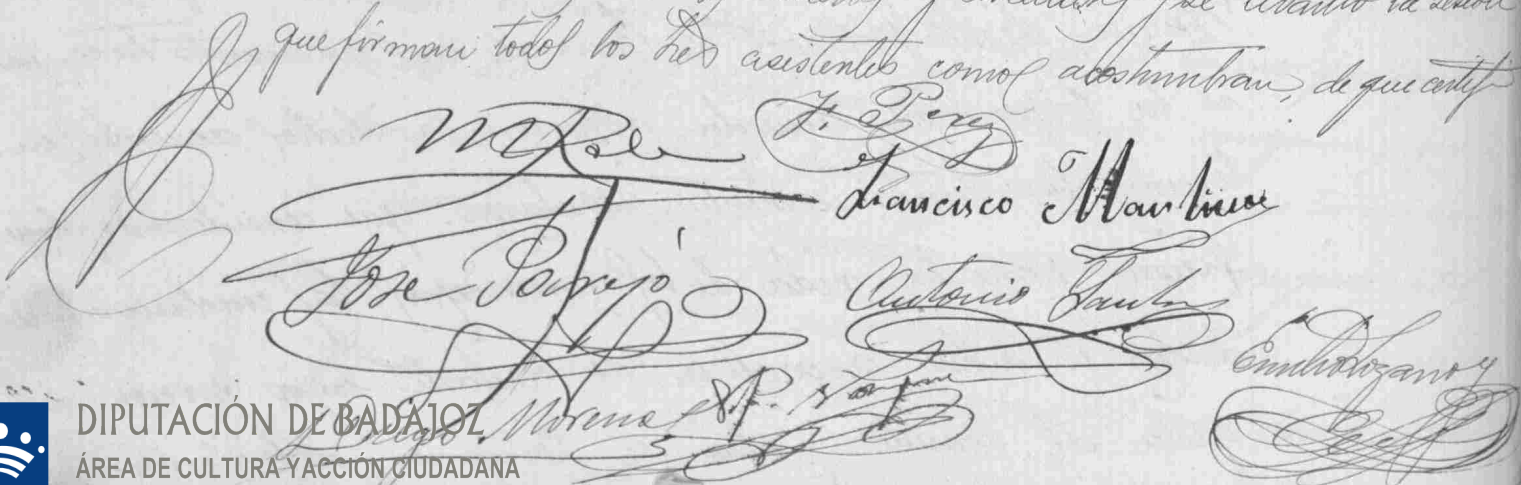 se levantó la sesión
que firman todos los Sres asistentes como acostumbran, de que certif
F. Perez
Francisco Martinez
Jose Parejo
Antonio Santos
Emilio Lozano y
Diego Moreno
DIPUTACIÓN DE BADAJOZ
ÁREA DE CULTURA Y ACCIÓN CIUDADANA